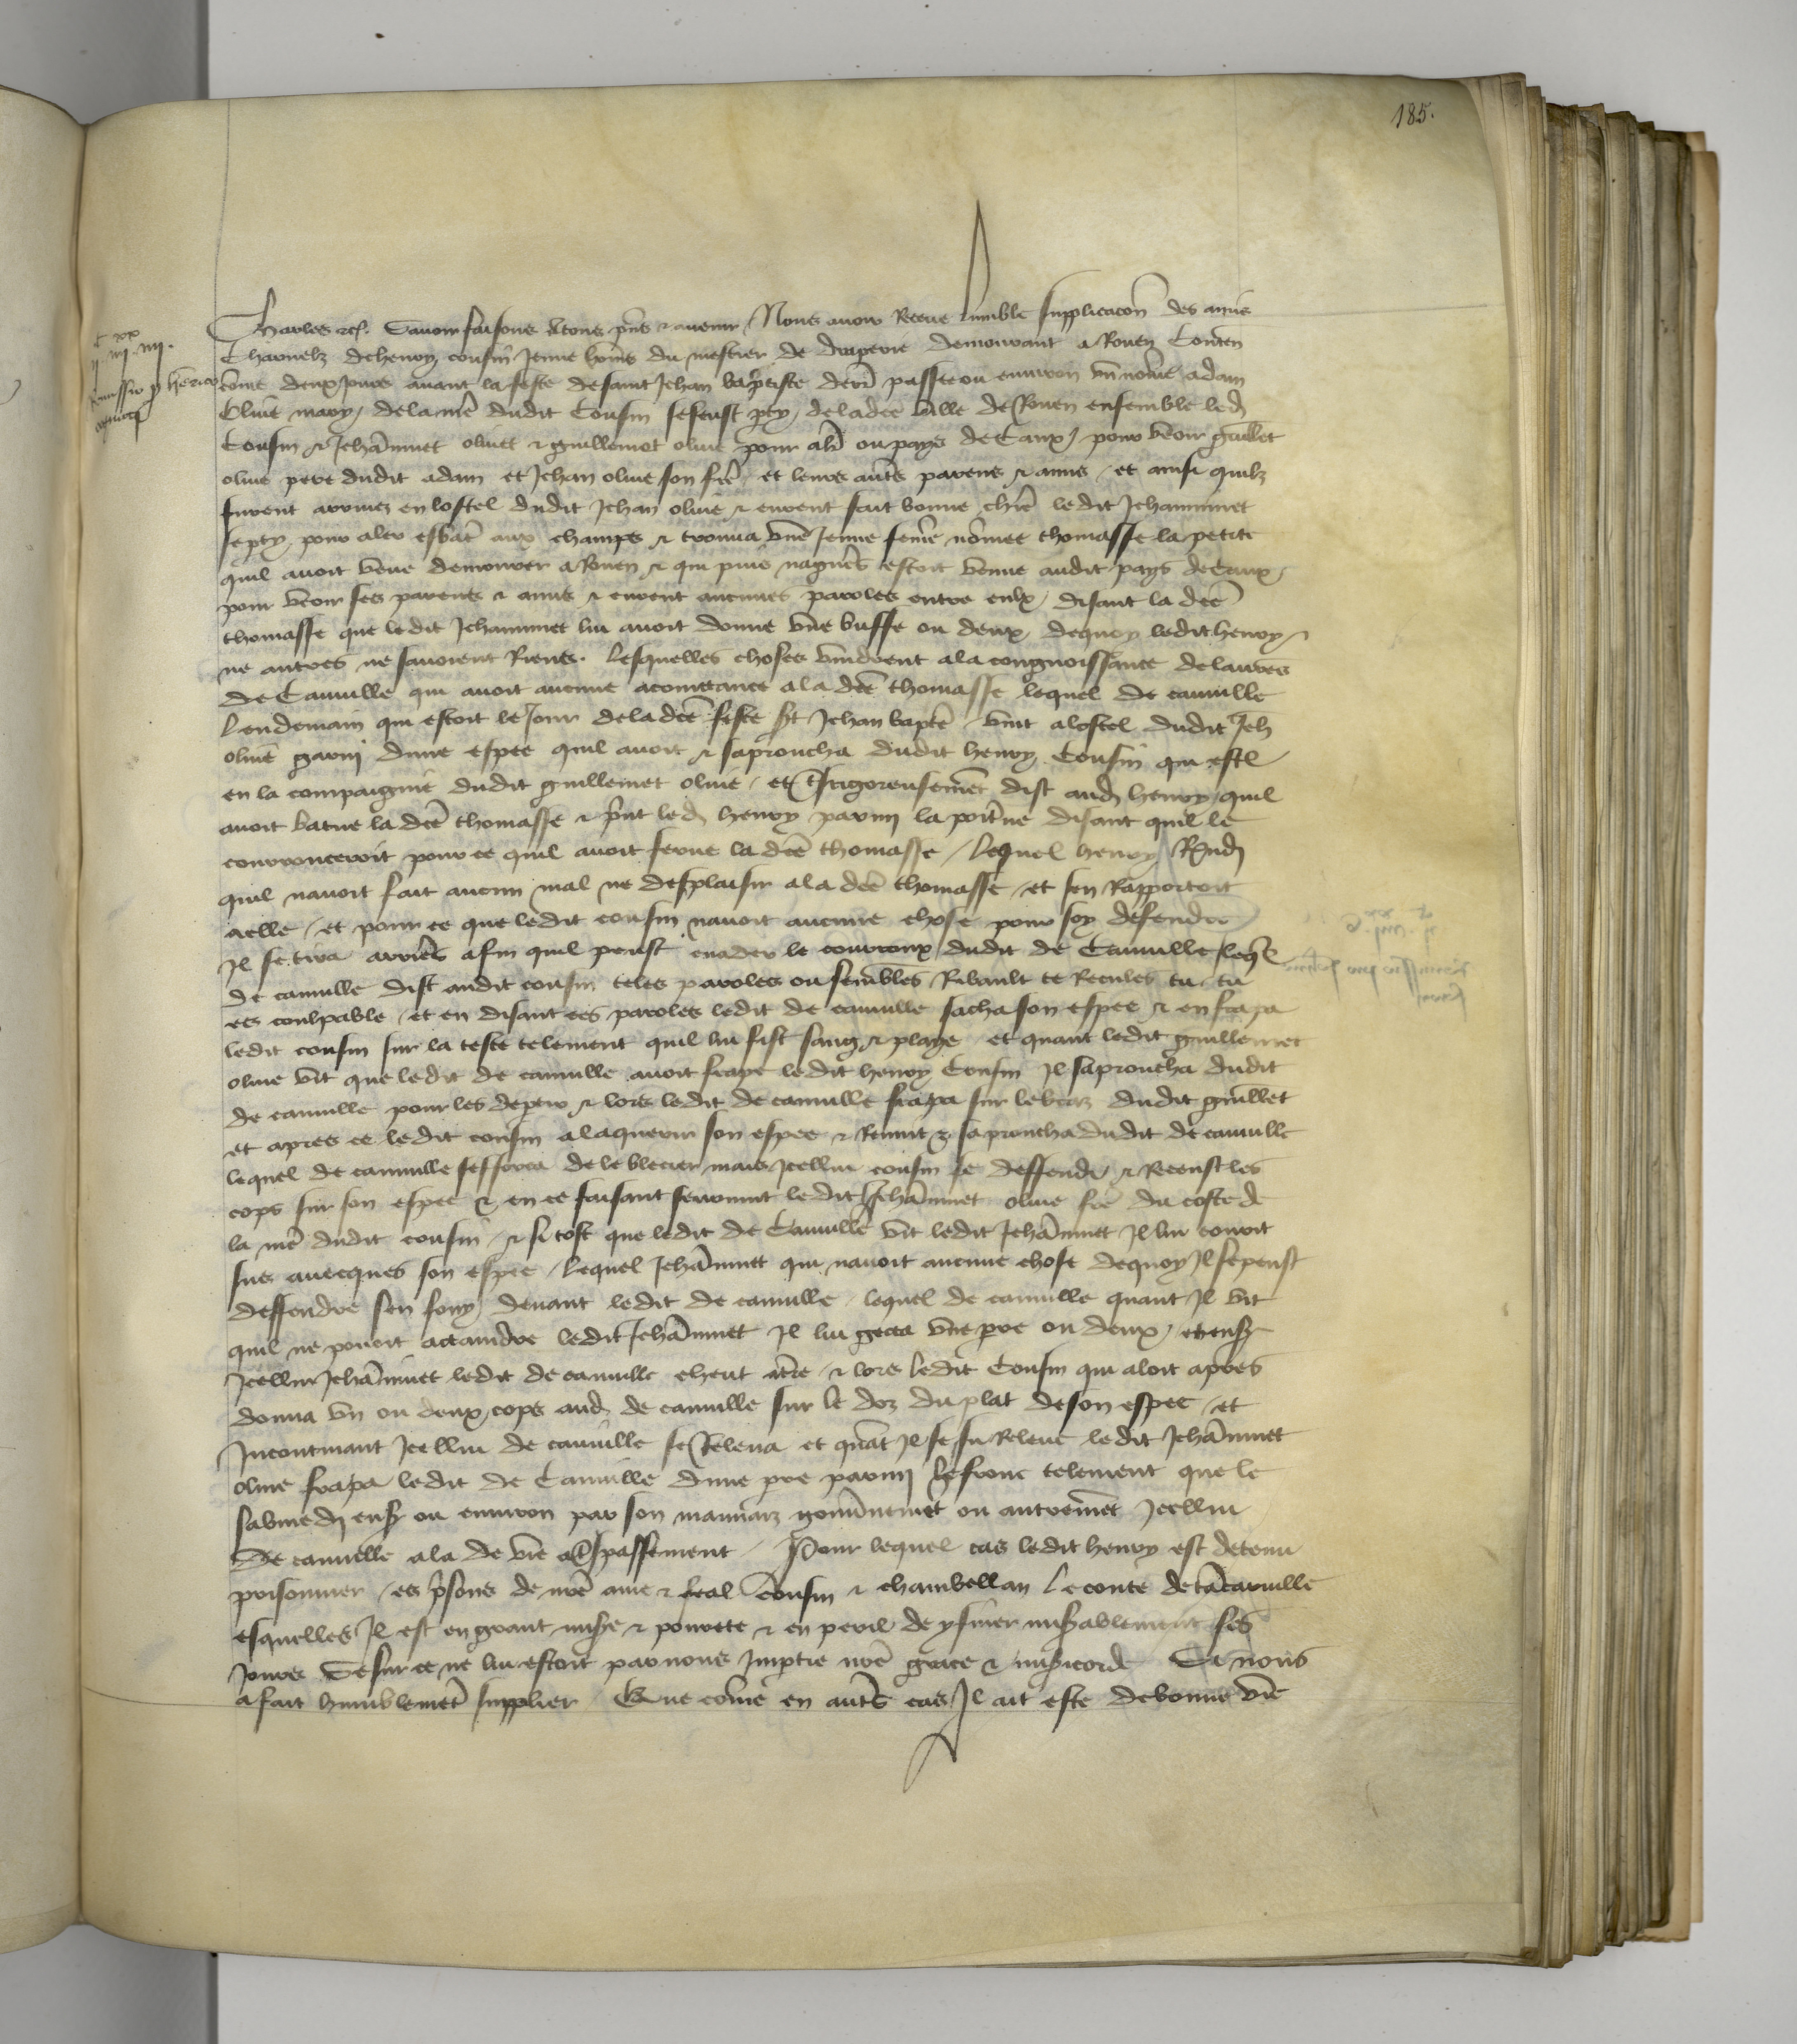 185.
Charles etc. Savoir faisons a tous pñs & avenir Nous avoir Receue humble supplicacõn des amis
Charnelz de henry cousin Jeune hõme du mestier de draperie demourant a Rouen Conten
cõme deux Jours avant la feste de saint Jehan baptiste derr̃ passee ou environ un nõme adam
Olive mary de la mẽ dudit Cousin se feust pty de la dcẽ ville de Rouen ensemble led
Cousin & Jehãnnet olivet & guillemot olive pour alr̃ ou pays de Caux pour veoir guillet
olive pere dudit adam et Jehan olive son frẽ et leurs autr̃s parens & amis et ainsi quilz
furent arrivez en lostel dudit Jehan olive & eurent fait bonne chiẽ ledit Jehannnet
se pty pour aler esbatr̃ aux champs & trouva unẽ Jeune femẽ nõmee thomasse la petite
quil avoit veue demourer a Rouen & qui puis nagueres estoit venue audit pays de Caux
pour veoir ses parens & amis & eurent aucunes paroles entre eulx disant la dcẽ
thomasse que ledit Jehannnet lui avoit donne une buffe ou deux dequoy ledit henry
ne autres ne savoient Riens. Lesquelles choses vindrent a la congnoissance de
de Canville qui avoit aucune acointance a la dcẽ thomasse lequel de canville
lendemain qui estoit le Jour de la dcẽ feste st Jehan baptẽ vint a lostel dudit Jeh
olive garni dune espee quil avoit & saproucha dudit henry Cousin qui est
en la compaignie dudit guillemet olive et rigoreusemẽt dist aud henry quil
avoit batue la dcẽ thomasse & prĩt led henry parmi la poitr̃ne disant quil le
courrouceroit pour ce quil avoit ferue la dcẽ thomasse Lequel henry Rñd
quil navoit fait aucun mal ne desplaisir a la dcẽ thomasse et sen Rapportoit
a elle et pour ce que ledit cousin navoit aucune chose pour soy defendre
Il se tira arrier̃s afin quil peust evader le courroux dudit de Canville leql̃
de canville dist audit cousin teles paroles ou semblables Ribault te Recules tu tu
es coulpable et en disant ces paroles ledit de canville sacha son espee & en frapa
ledit cousin sur la teste telement quil lui fist sang & playe et quant ledit guillemet
olive vit que ledit de canville avoit frape ledit henry Cousin Il saproucha dudit
de canville pour les deptir & lors ledit de canville frapa sur le braz dudit guillet
et apres ce ledit cousin ala querir son espee & Revint & saproucha dudit de canville
lequel de canville sefforca de le blecier mais Icellui cousin se deffendi & Receust les
cops sur son espee & en ce faisant seurvint ledit Jehãnnet olive frẽ du coste de
la mẽ dudit cousin & si tost que ledit de Canville vit ledit Jehãnnet Il lui couroit
sus avecques son espee Lequel Jehãnnet qui navoit aucune chose dequoy Il se peust
deffendre sen fouy devant ledit de canville lequel de canville quant Il vit
quil ne povoit actaindre ledit Jehãnnet Il lui gecta une prẽ ou deux et
Icellui Jehãnnet ledit de canville cheut a tr̃re & lors ledit Cousin qui aloit apres
donna un ou deux cops aud de canville sur le doz du plat de son espee et
Incontinant Icellui de canville se Releva et quãt Il se fu Releve ledit Jehãnnet
olive frapa ledit de Canville dune prẽ parmi le front telement que le
samedi ou environ par son mauvaiz gouvernemẽt ou autremẽt Icellui
de canville ala de vie a trespassement Pour lequel cas ledit henry est detenu
prisonnier es prisons de nrẽ ame & feal cousin & chambellan le conte de tãcarville
esquelles Il est en grant mise & povrete & en peril de y finer miserablement ses
Jours Se sur ce ne lui estoit par nous Imptie nrẽ grace & misericorde Si nous
a fait humblemẽt supplier Que cõme en autr̃s cas Il ait este de bonne vie